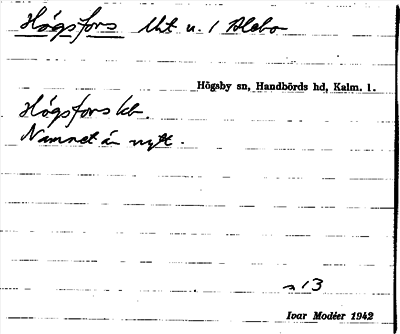 Högsfors lht u. / Alebo
Högsby sn, Handbörds hd, Kalm. l.
Högsfors kb.
Namnet är nytt.
s 13
Ivar Modéer 1942